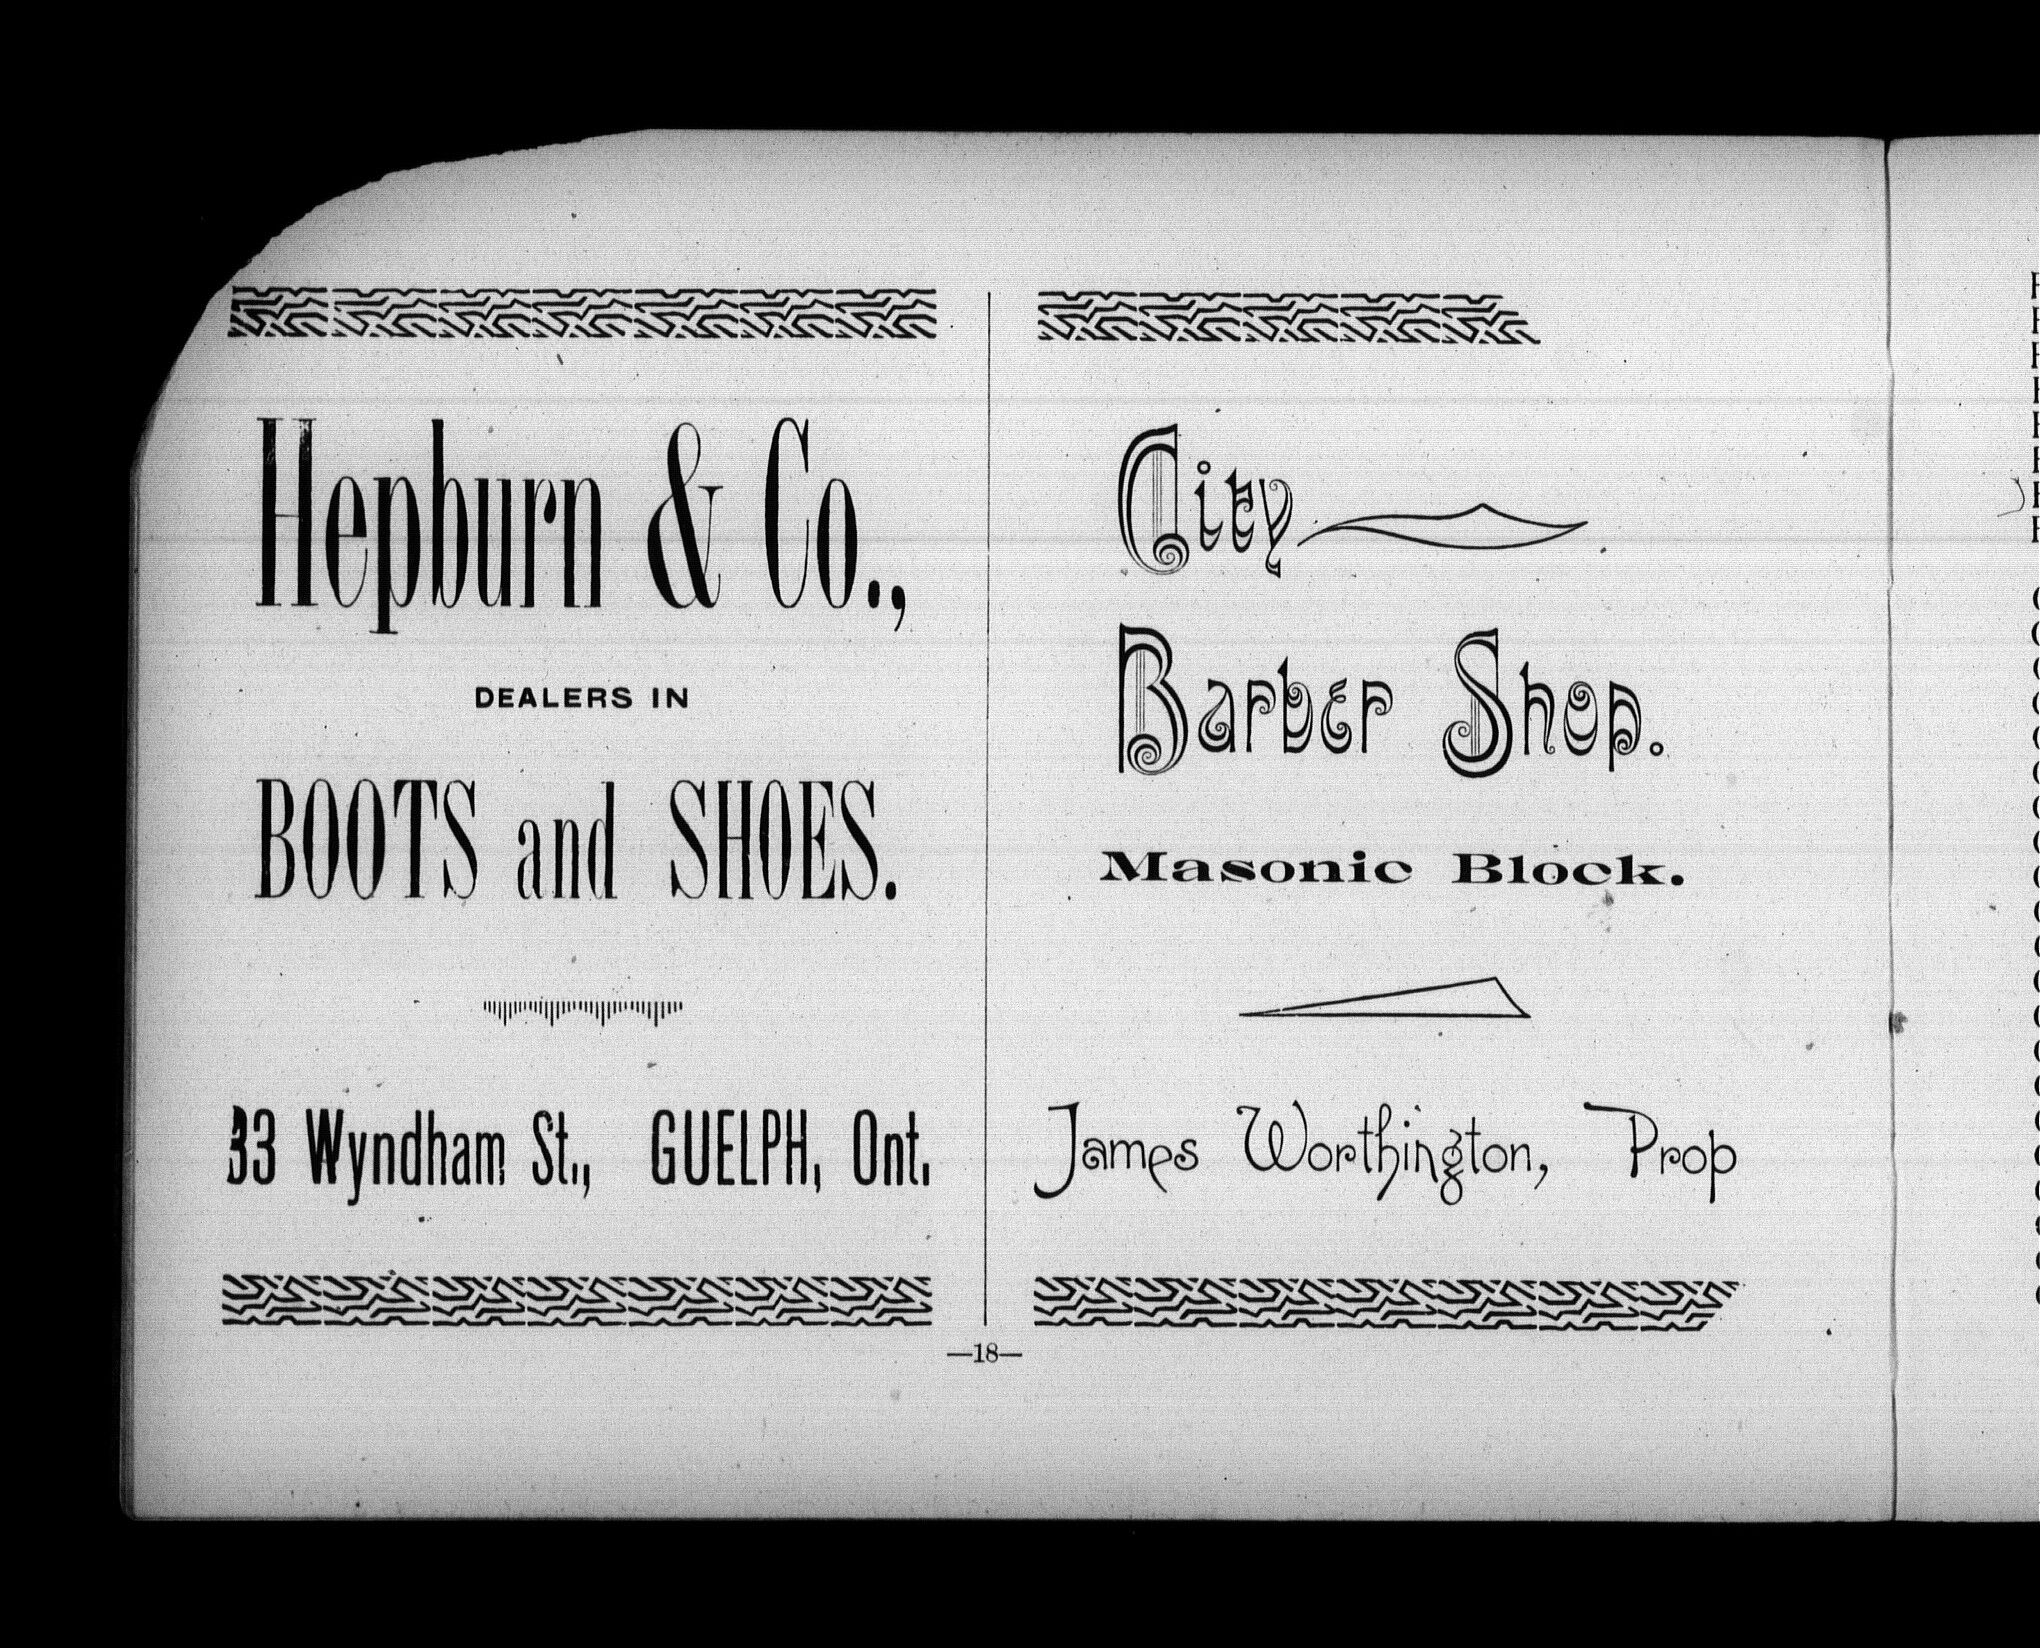 Hepburn & Co.,
DEALERS IN
BOOTS and SHOES.
33 Wyndham St., GUELPH, Ont.
City
Barber Shop.
Masonic Block.
James Worthington, Prop
—18—